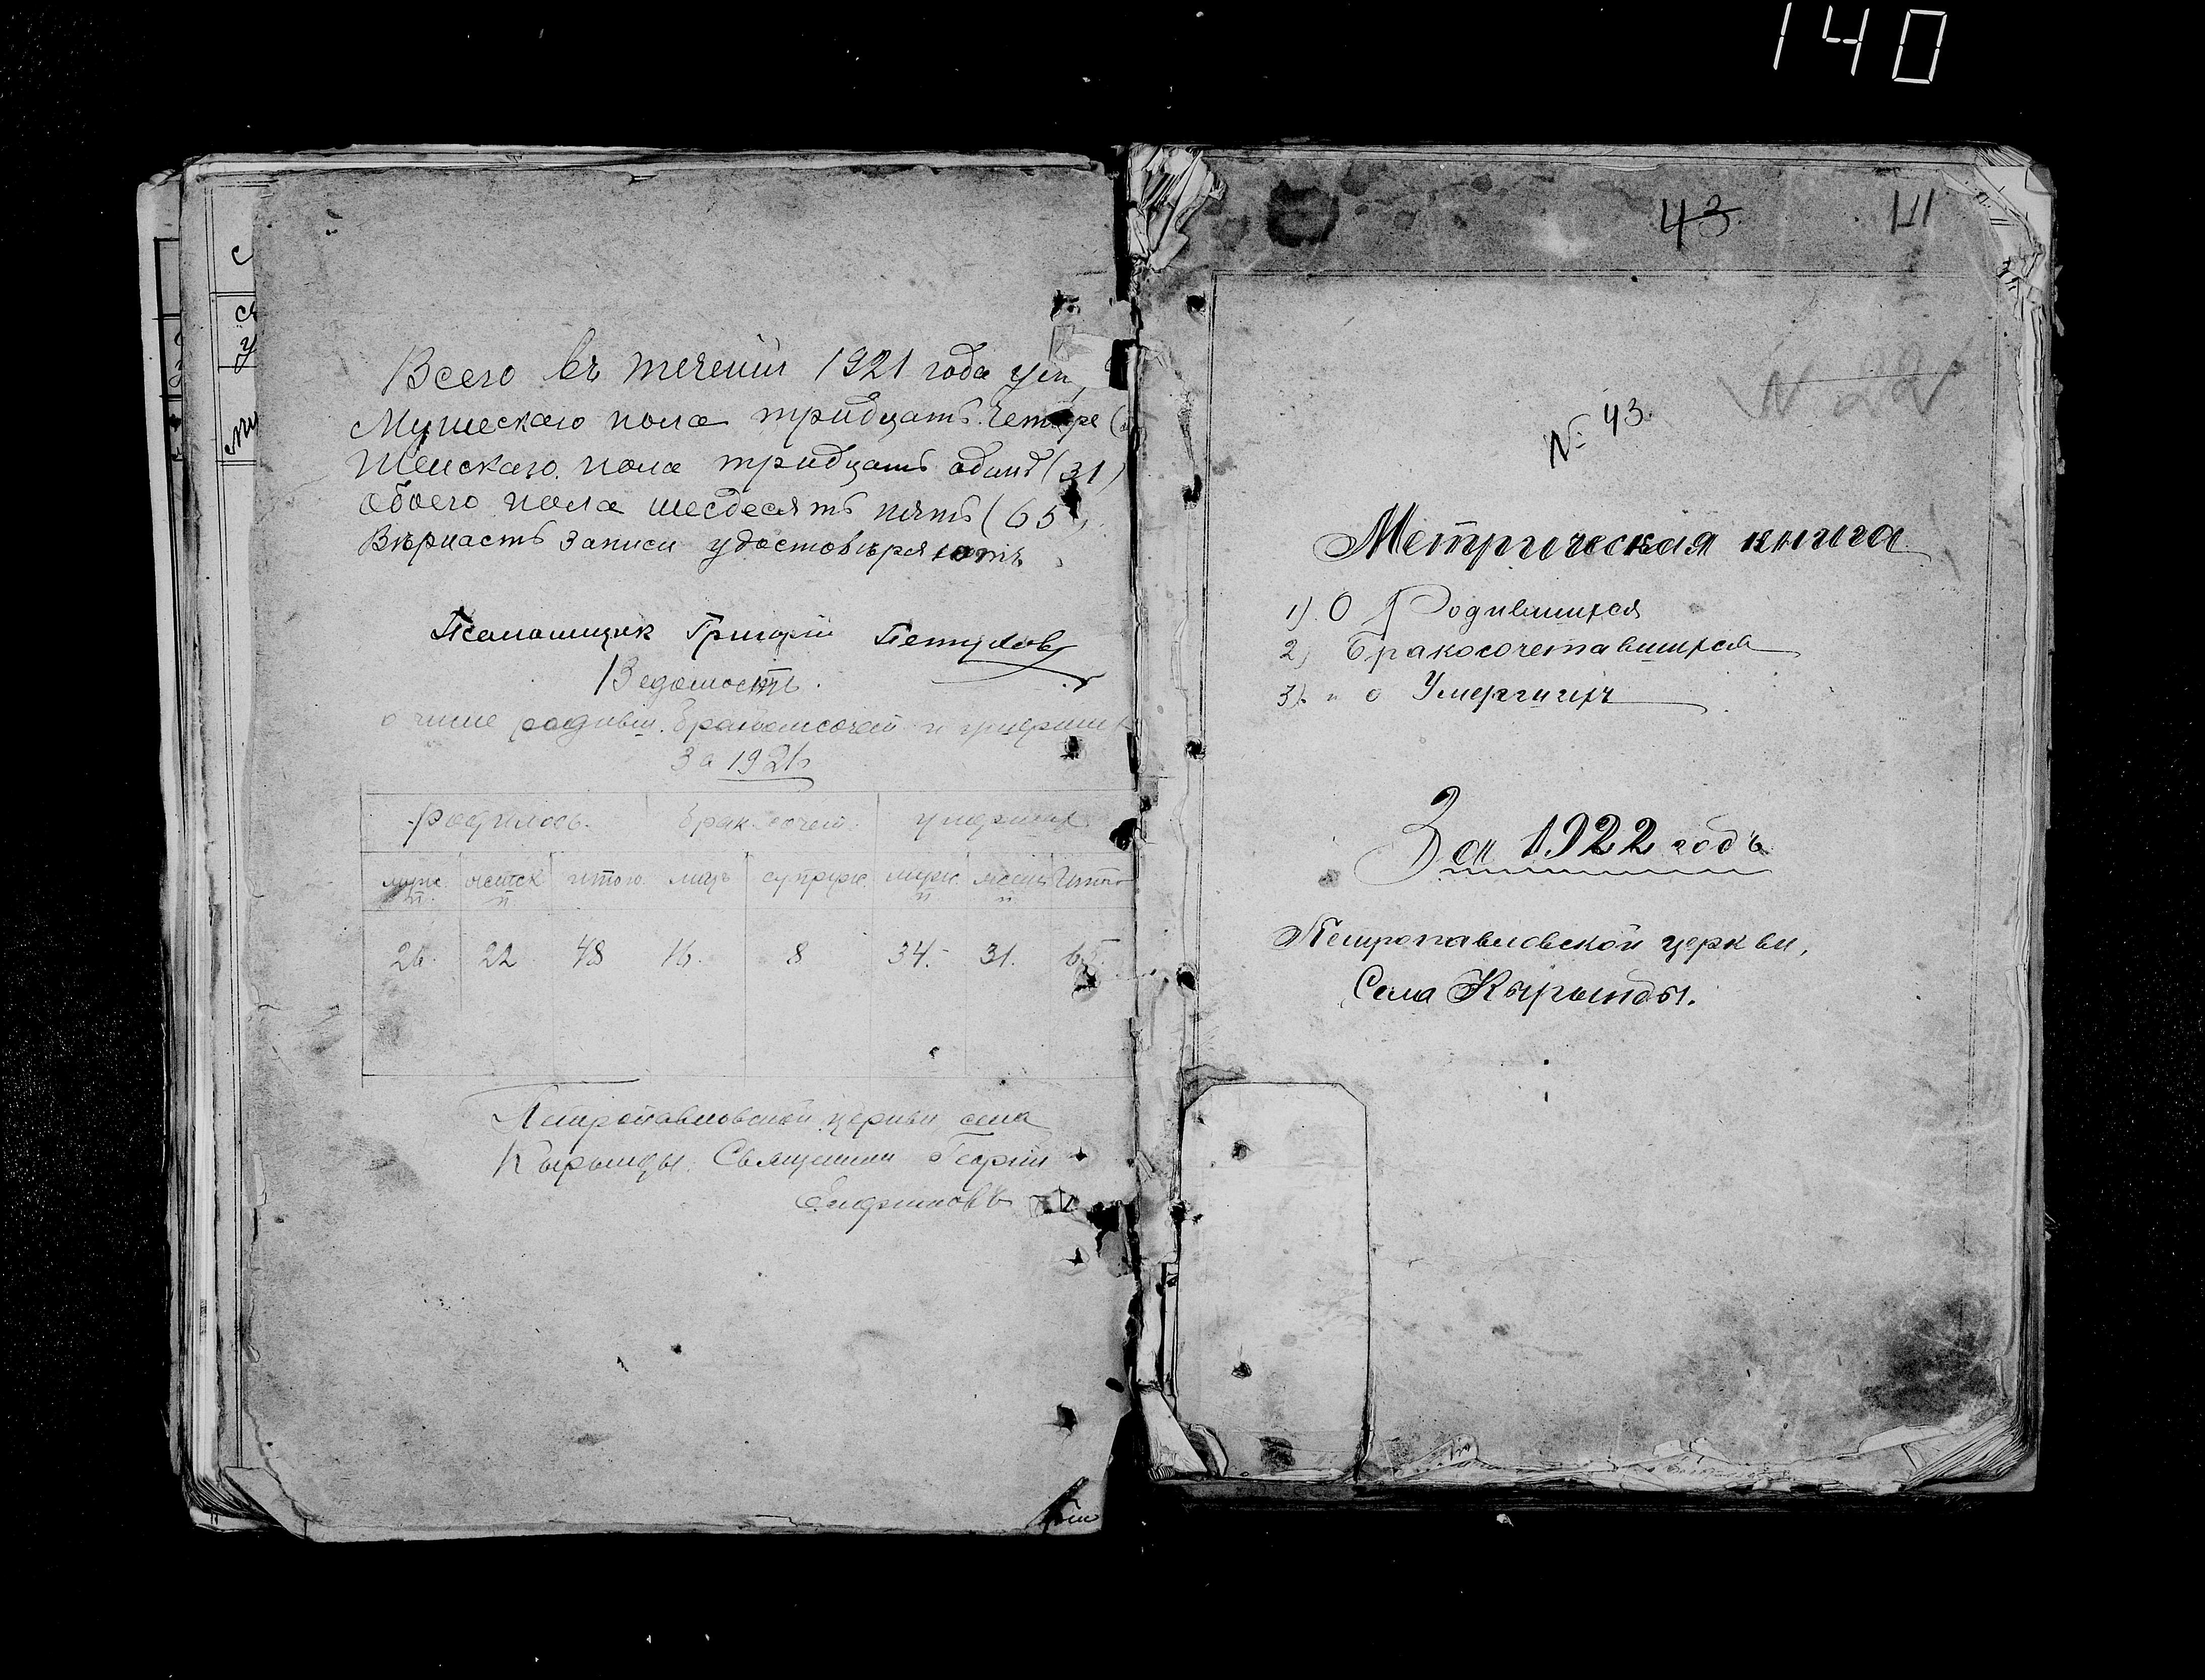 140
Всего въ течении 1921 года ум
Мужескаго пола тридцать четыре (
Женскаго пола тридцать одинъ (31)
Обоего пола шесдесятъ пять (65)
Вѣрнасть записи удостовѣряютъ
Псаломщик Григорій Петухов
Ведомость
о числе родивш. и умерших
За 1921
родилось. брак. сочет. умерших
муж. п. женск п итого. лицъ супруж. муж. п. женс п Итого
26. 22 48 16. 8 34. 31. 65.
Петропавловской церкви села
Кырынды. Священник Георгий
43 111
N 22
№ 43.
Метрическая книга
1) О Родившихся
2) Бракосочетавшихся
3) и о Умерших
За 1922 годъ
Петропавловской церкви,
Села Кырынды.